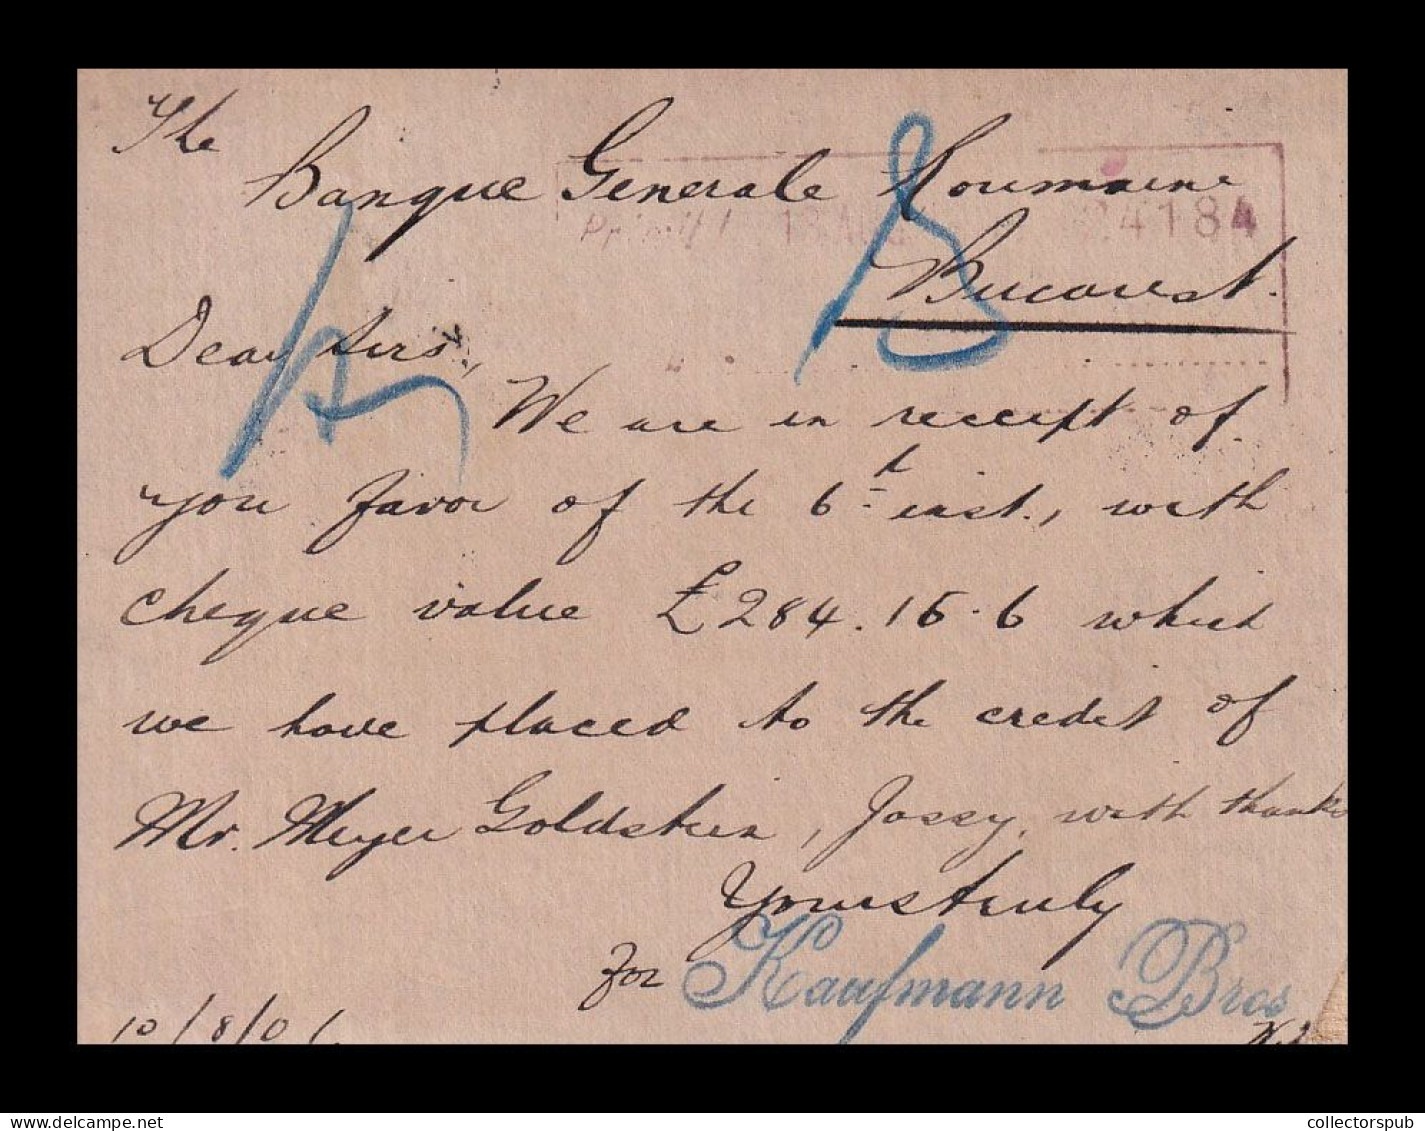 The
Banque Generale Roumaine
13 AUG 24184
Bucarest.
Dear Sirs,
We are in receipt of
you favor of the 6th inst., with
cheque value £284.15.6 which
we have placed to the credit of
Mr. Meyer Goldstein, Jassy, with thanks
Yours truly
for Kaufmann Bros
10/8/06.
www.delcampe.net
collectorspub